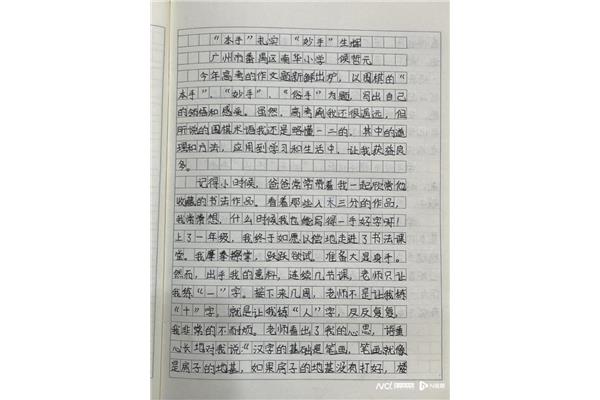 “本手”扎实 “妙手”生辉
广州市番禺区南华小学 侯哲元
今年高考的作文题新鲜出炉，以围棋的“
本手”、“妙手”、“俗手”为题，写出自己
的领悟和感受。虽然，高考离我还很遥远，但
所说的围棋术语我还是略懂一二的。其中的道
理和方法，应用到学习和生活中，让我获益良
多。
记得小时候，爸爸常常带着我一起欣赏他
收藏的书法作品。看着那些入木三分的作品，
我常常想，什么时候我也能写得一手好字呀！
上了一年级，我终于如愿以偿地走进了书法课
堂。我摩拳擦掌，跃跃欲试，准备大显身手。
然而，出乎我的意料，连续几节课，老师只让
我练“一”字。接下来几周，老师不是让我练
“十”字，就是让我练“人”字，反反复复，
我非常的不耐烦。老师看出了我的心思，语重
心长地对我说“汉字的基础是笔画，笔画就像
是房子的地基，如果房子的地基没有打好，楼